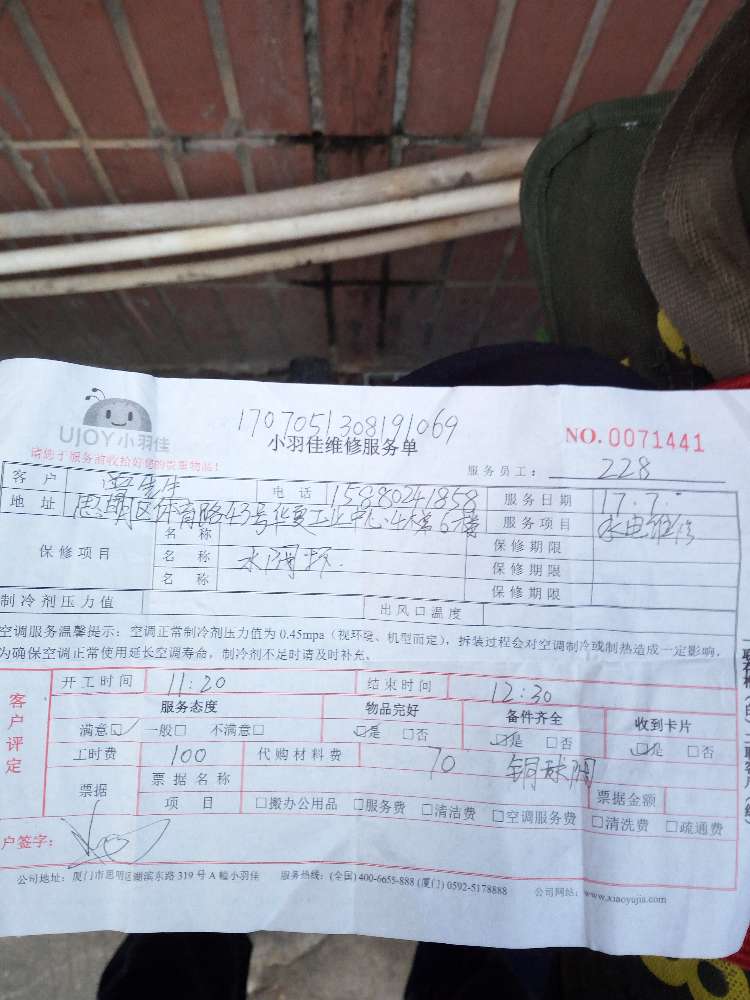 UJOY小羽佳
1707051308191069
小羽佳维修服务单
NO. 0071441
请您于服务前收拾好您的贵重物品!
服务员工: 228
客户 先生 电话 15880241858 服务日期 17.7.
地址 思明区体育路43号华夏工业中心4楼6楼 服务项目 水电维修
保修项目 名称 保修期限
名称 水阀坏. 保修期限
名称 保修期限
制冷剂压力值 出风口温度
空调服务温馨提示:空调正常制冷剂压力值为 0.45mpa(视环境、机型而定),拆装过程会对空调制冷或制热造成一定影响,
为确保空调正常使用延长空调寿命,制冷剂不足时请及时补充、
客户评定
开工时间 11:20 结束时间 12:30
服务态度 物品完好 备件齐全 收到卡片
满意☑ 一般□ 不满意□ ☑是 □否 ☑是 □否 ☑是 □否
工时费 100 代购材料费 70 铜球阀
票据 票据名称 票据金额
项目 □搬办公用品 □服务费 □清洁费 □空调服务费 □清洗费 □疏通费
户签字:
公司地址:厦门市思明区湖滨东路 319 号 A 幢小羽佳 服务热线:(全国) 400-6655-888 (厦门) 0592-5178888 公司网站:www.xiaoyujia.com